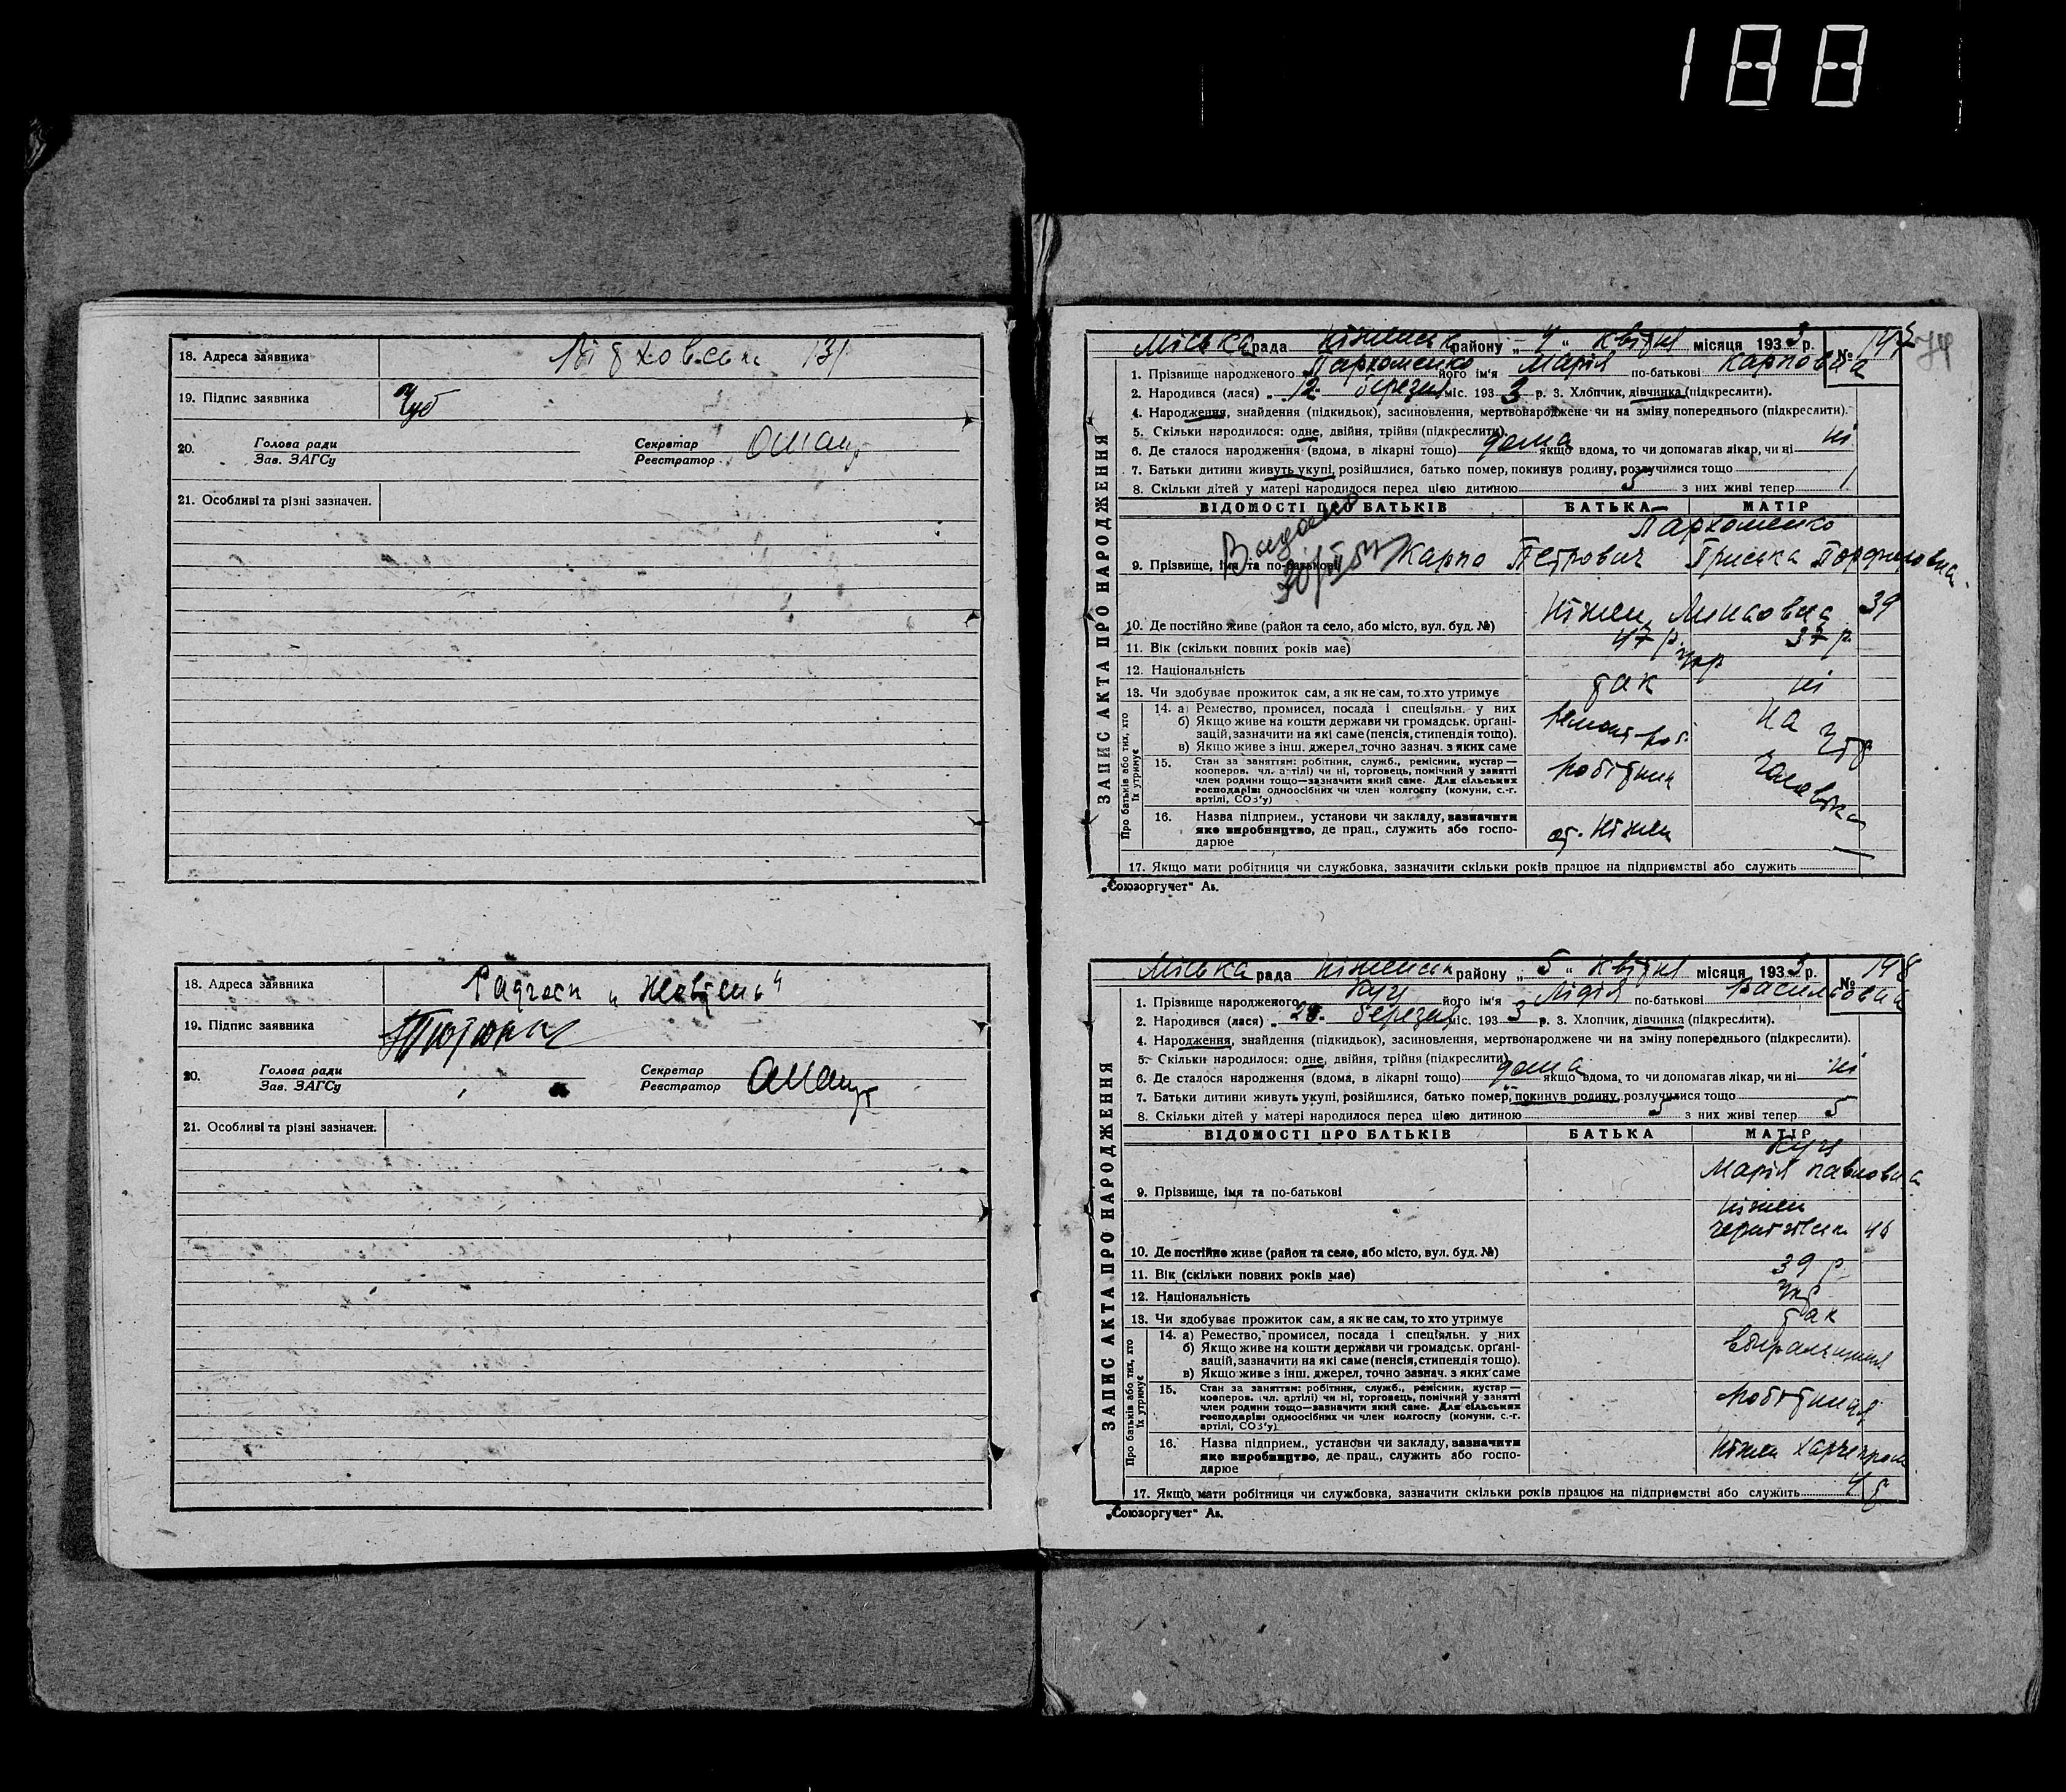 188
18. Адреса заявника
131
19. Підпис заявника
Чуб
20. Голова ради Секретар
Зав. ЗАГСу Реєстратор
21. Особливі та різні зазначен.
18. Адреса заявника
Радгосп „Жовтень"
19. Підпис заявника
20. Голова ради Секретар
Зав. ЗАГСу Реєстратор
21. Особливі та різні зазначен.
74
Міська рада Ніженськ району „4" квітня місяця 1933 р. №
1. Прізвище народженого Пархоменко його ім'я Марія по-батькові Карповна
2. Народився (лася) 12 березня міс. 1933 р. 3. Хлопчик, дівчинка (підкреслити).
4. Народження, знайдення (підкидьок), засиновлення, мертвонароджене чи на зміну попереднього (підкреслити).
5. Скільки народилося: одне, двійня, трійня (підкреслити)
6. Де сталося народження (вдома, в лікарні тощо) дома якщо вдома, то чи допомагав лікар, чи ні ні
7. Батьки дитини живуть укупі, розійшлися, батько помер, покинув родину, розлучилися тощо
8. Скільки дітей у матері народилося перед цією дитиною 5 з них живі тепер 1
ЗАПИС АКТА ПРО НАРОДЖЕННЯ
ВІДОМОСТІ ПРО БАТЬКІВ БАТЬКА МАТІР
Пархоменко
Видано
9. Прізвище, імя та по-батькові Карпо Петрович Пріська
10. Де постійно живе (район та село, або місто, вул. буд. №) Ніжен, 39
11. Вік (скільки повних років має) 47 р. 37 р.
12. Національність укр
13. Чи здобуває прожиток сам, а як не сам, то хто утримує так ні
Про батьків або тих, хто їх утримує
14. а) Ремество, промисел, посада і спеціяльн. у них
б) Якщо живе на кошти держави чи громадськ. органі-
зацій, зазначити на які саме (пенсія, стипендія тощо).
в) Якщо живе з інш. джерел, точно зазнач. з яких саме
ремонт. роб. на утр
15. Стан за заняттям: робітник, служб., ремісник, кустар —
кооперов. чл. артілі) чи ні, торговець, помічний у занятті
член родини тощо—зазначити який саме. Для сільських
господарів: одноосібних чи член колгоспу (комуни, с.-г.
артілі, СОЗ'у)
робітник чоловіка
16. Назва підприєм., установи чи закладу, зазначити
яке виробництво, де прац., служить або госпо-
дарює
ст. Ніжен
17. Якщо мати робітниця чи службовка, зазначити скільки років працює на підприємстві або служить
„Союзоргучет" Ав.
Міська рада Ніженськ району „5" квітня місяця 1933 р. № 198
1. Прізвище народженого Куч його ім'я Лідія по-батькові Васильовна
2. Народився (лася) березня міс. 1933 р. 3. Хлопчик, дівчинка (підкреслити).
4. Народження, знайдення (підкидьок), засиновлення, мертвонароджене чи на зміну попереднього (підкреслити).
5. Скільки народилося: одне, двійня, трійня (підкреслити)
6. Де сталося народження (вдома, в лікарні тощо) дома якщо вдома, то чи допомагав лікар, чи ні ні
7. Батьки дитини живуть укупі, розійшлися, батько помер, покинув родину, розлучилися тощо
8. Скільки дітей у матері народилося перед цією дитиною 5 з них живі тепер 5
ЗАПИС АКТА ПРО НАРОДЖЕННЯ
ВІДОМОСТІ ПРО БАТЬКІВ БАТЬКА МАТІР
Куч
Марія Павловна
9. Прізвище, імя та по-батькові
Ніжен
46
10. Де постійно живе (район та село, або місто, вул. буд. №)
11. Вік (скільки повних років має) 39 р
12. Національність укр
13. Чи здобуває прожиток сам, а як не сам, то хто утримує так
Про батьків або тих, хто їх утримує
14. а) Ремество, промисел, посада і спеціяльн. у них
б) Якщо живе на кошти держави чи громадськ. органі-
зацій, зазначити на які саме (пенсія, стипендія тощо).
в) Якщо живе з інш. джерел, точно зазнач. з яких саме
15. Стан за заняттям: робітник, служб., ремісник, кустар —
кооперов. чл. артілі) чи ні, торговець, помічний у занятті
член родини тощо—зазначити який саме. Для сільських
господарів: одноосібних чи член колгоспу (комуни, с.-г.
артілі, СОЗ'у)
робітниця
16. Назва підприєм., установи чи закладу, зазначити
яке виробництво, де прац., служить або госпо-
дарює
Ніжен Харчепром
17. Якщо мати робітниця чи службовка, зазначити скільки років працює на підприємстві або служить
„Союзоргучет" Ав.